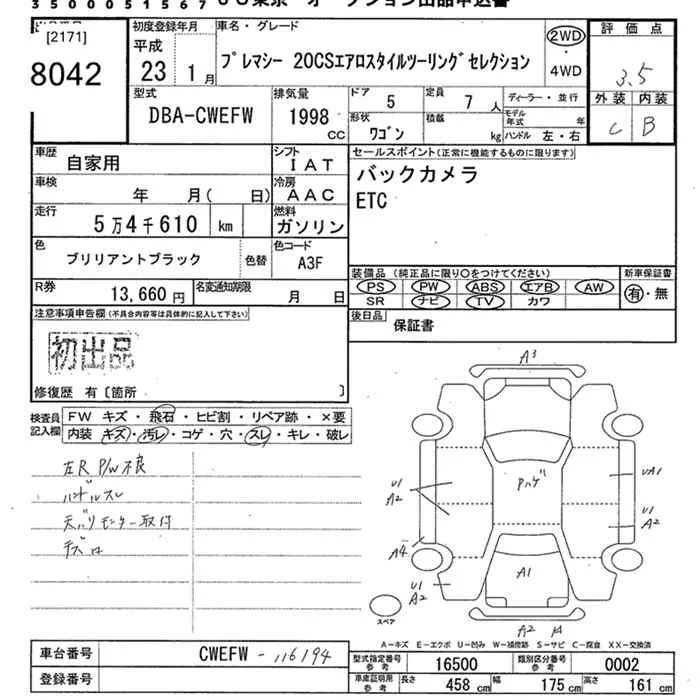 350005156 7
[2171]
8042
初度登録年月 車名・グレード
平成
23 1月
プレマシー 20CSエアロスタイルツーリングセレクション
2WD
・
4WD
評価点
3.5
外装 内装
C B
型式 排気量 ドア 定員 ディーラー・並行
DBA-CWEFW 1998 CC 5 7 人
形状 積載 モデル年式 年
ワゴン kg ハンドル 左・右
車歴 自家用
シフト IAT
車検 年 月( 日)
冷房 AAC
走行 5万4千610 km
燃料 ガソリン
色 ブリリアントブラック 色替
色コード A3F
R券 13,660円
名変通知期限 月 日
セールスポイント(正常に機能するものに限ります)
バックカメラ
ETC
装備品(純正品に限り○をつけてください) 新車保証書
PS PW ABS エアB AW 有・無
SR ナビ TV カワ
後日品 保証書
注意事項申告欄(不具合内容等は具体的に記入して下さい)
初出品
修復歴 有〔箇所 〕
検査員記入欄
FW キズ・飛石・ヒビ割・リペア跡・×要
内装 キズ・汚レ・コゲ・穴・スレ・キレ・破レ
左R P/W不良
ハンドルスレ
天バリモニター取付
A3
Pハゲ
U1
A2
UA1
U1
A2
A4
U1
A2
A1
A2
スペア
A−キズ E−エクボ U−凹み W−補修跡 S−サビ C−腐食 XX−交換済
車台番号 CWEFW -116194
登録番号
型式指定番号参考 16500 類別区分番号参考 0002
車庫証明用参考 長さ 458 cm 幅 175 cm 高さ 161 cm